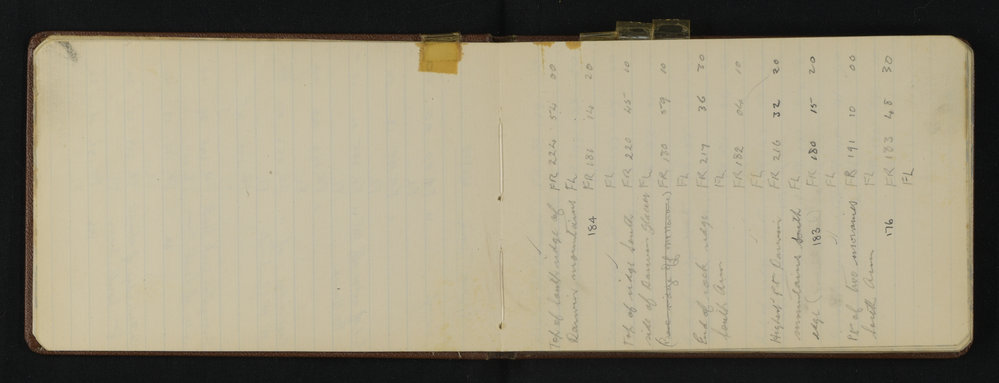 Top of South ridge of FR 224 54 00
Darwin mountains FL
184 FR 181 14 20
FL
Top of ridge South FR 220 45 10
side of Darwin glacier FL
FR 180 59 10
FL
End of rock ridge FR 217 36 30
South Arm FL
FR 182 04 10
FL
Highest Pt Darwin FR 216 32 20
mountains South FL
edge 183 FR 180 15 20
FL
Pt of two moraines FR 191 10 00
South Arm FL
176 FR 183 48 30
FL